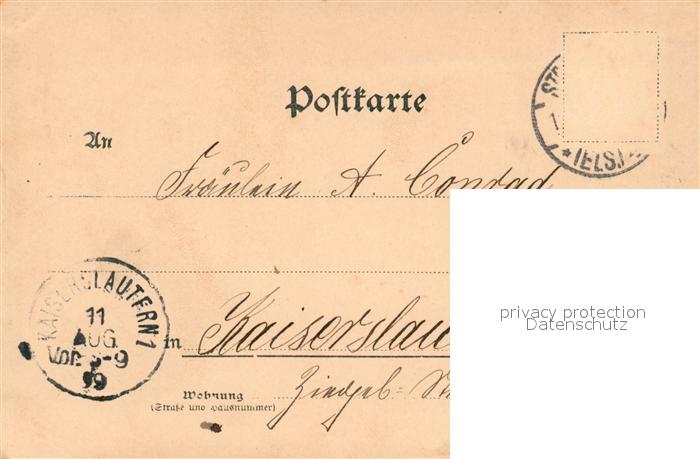 Postkarte
An
Fräulein A. Conrad
KAISERSLAUTERN 1
11
AUG.
Vor. 8-9
99
in Kaiserslau
Ziegel-
Wohnung
(Straße und Hausnummer)
(ELS.)
privacy protection
Datenschutz